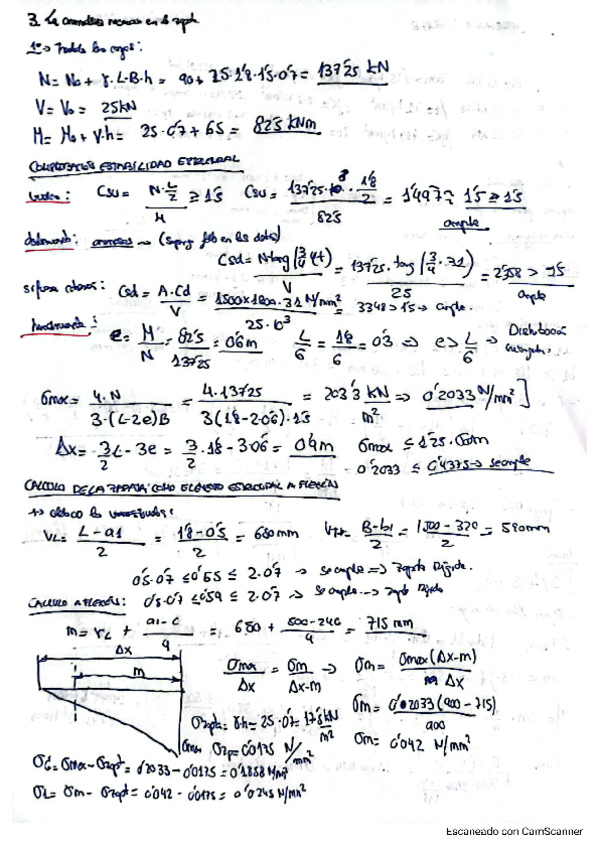 3.
1º → los cargas:
N = No + γ·L·B·h = 90 + 25·1'8·1'5·0'7 = 137'25 kN
V = Vo = 25kN
M = Mo + V·h = 25·0'7 + 65 = 82'5 kNm
COMPROBACIÓN ESTABILIDAD ESTRUCTURAL
Vuelco: Csv = N·L/2 / M ≥ 1'5 Csv = 137'25· · 1'8/2 / 82'5 = 1'497 ≈ 1'5 ≥ 1'5
cumple
deslizamiento: → (Supong en los datos)
Csd = N·tang(3/4 φ) / V = 137'25·tang(3/4·31) / 25 = 2'358 > 1'5
cumple
si fuera cohesivo: Csd = A·Cd / V = 1500x1800·31 N/mm² / 25·10³ = 3348 > 1'5 → cumple.
hundimiento: e = M/N = 82'5/137'25 = 0'6m L/6 = 1'8/6 = 0'3 ⇒ e > L/6 → Distribución
σmax = 4·N / 3·(L-2e)B = 4·137'25 / 3(1'8-2·0'6)·1'5 = 203'3 kN/m² ⇒ 0'2033 N/mm² ]
Δx = 3/2 L - 3e = 3/2·1'8 - 3·0'6 = 0'9m σmax ≤ 1'25·σadm
0'2033 ≤ 0'4375 → se cumple
CALCULO DE LA ZAPATA COMO ELEMENTO ESTRUCTURAL A FLEXIÓN
1º→ los
VL = L - a1 / 2 = 1'8 - 0'5 / 2 = 650mm = B - b1 / 2 = 1500 - 320 / 2 = 590mm
0'5·0'7 ≤ 0'65 ≤ 2·0'7 → se cumple ⇒ Zapata Rígida.
CALCULO A FLEXIÓN: 0'5·0'7 ≤ 0'59 ≤ 2·0'7 → se cumple → Zapata Rígida
m = VL + a1 - c / 4 = 650 + 500 - 240 / 4 = 715 mm
Δx
m
σmax / Δx = σm / Δx-m ⇒ σm = σmax(Δx-m) / Δx
σzapata = γh = 25·0'7 = 17'5 kN/m²
σm = 0'2033(900 - 715) / 900
σmax
σzap = 0'0175 N/mm²
σm = 0'042 N/mm²
σc = σmax - σzapt = 0'2033 - 0'0175 = 0'1858 N/mm²
σL = σm - σzapt = 0'042 - 0'0175 = 0'0245 N/mm²
Escaneado con CamScanner